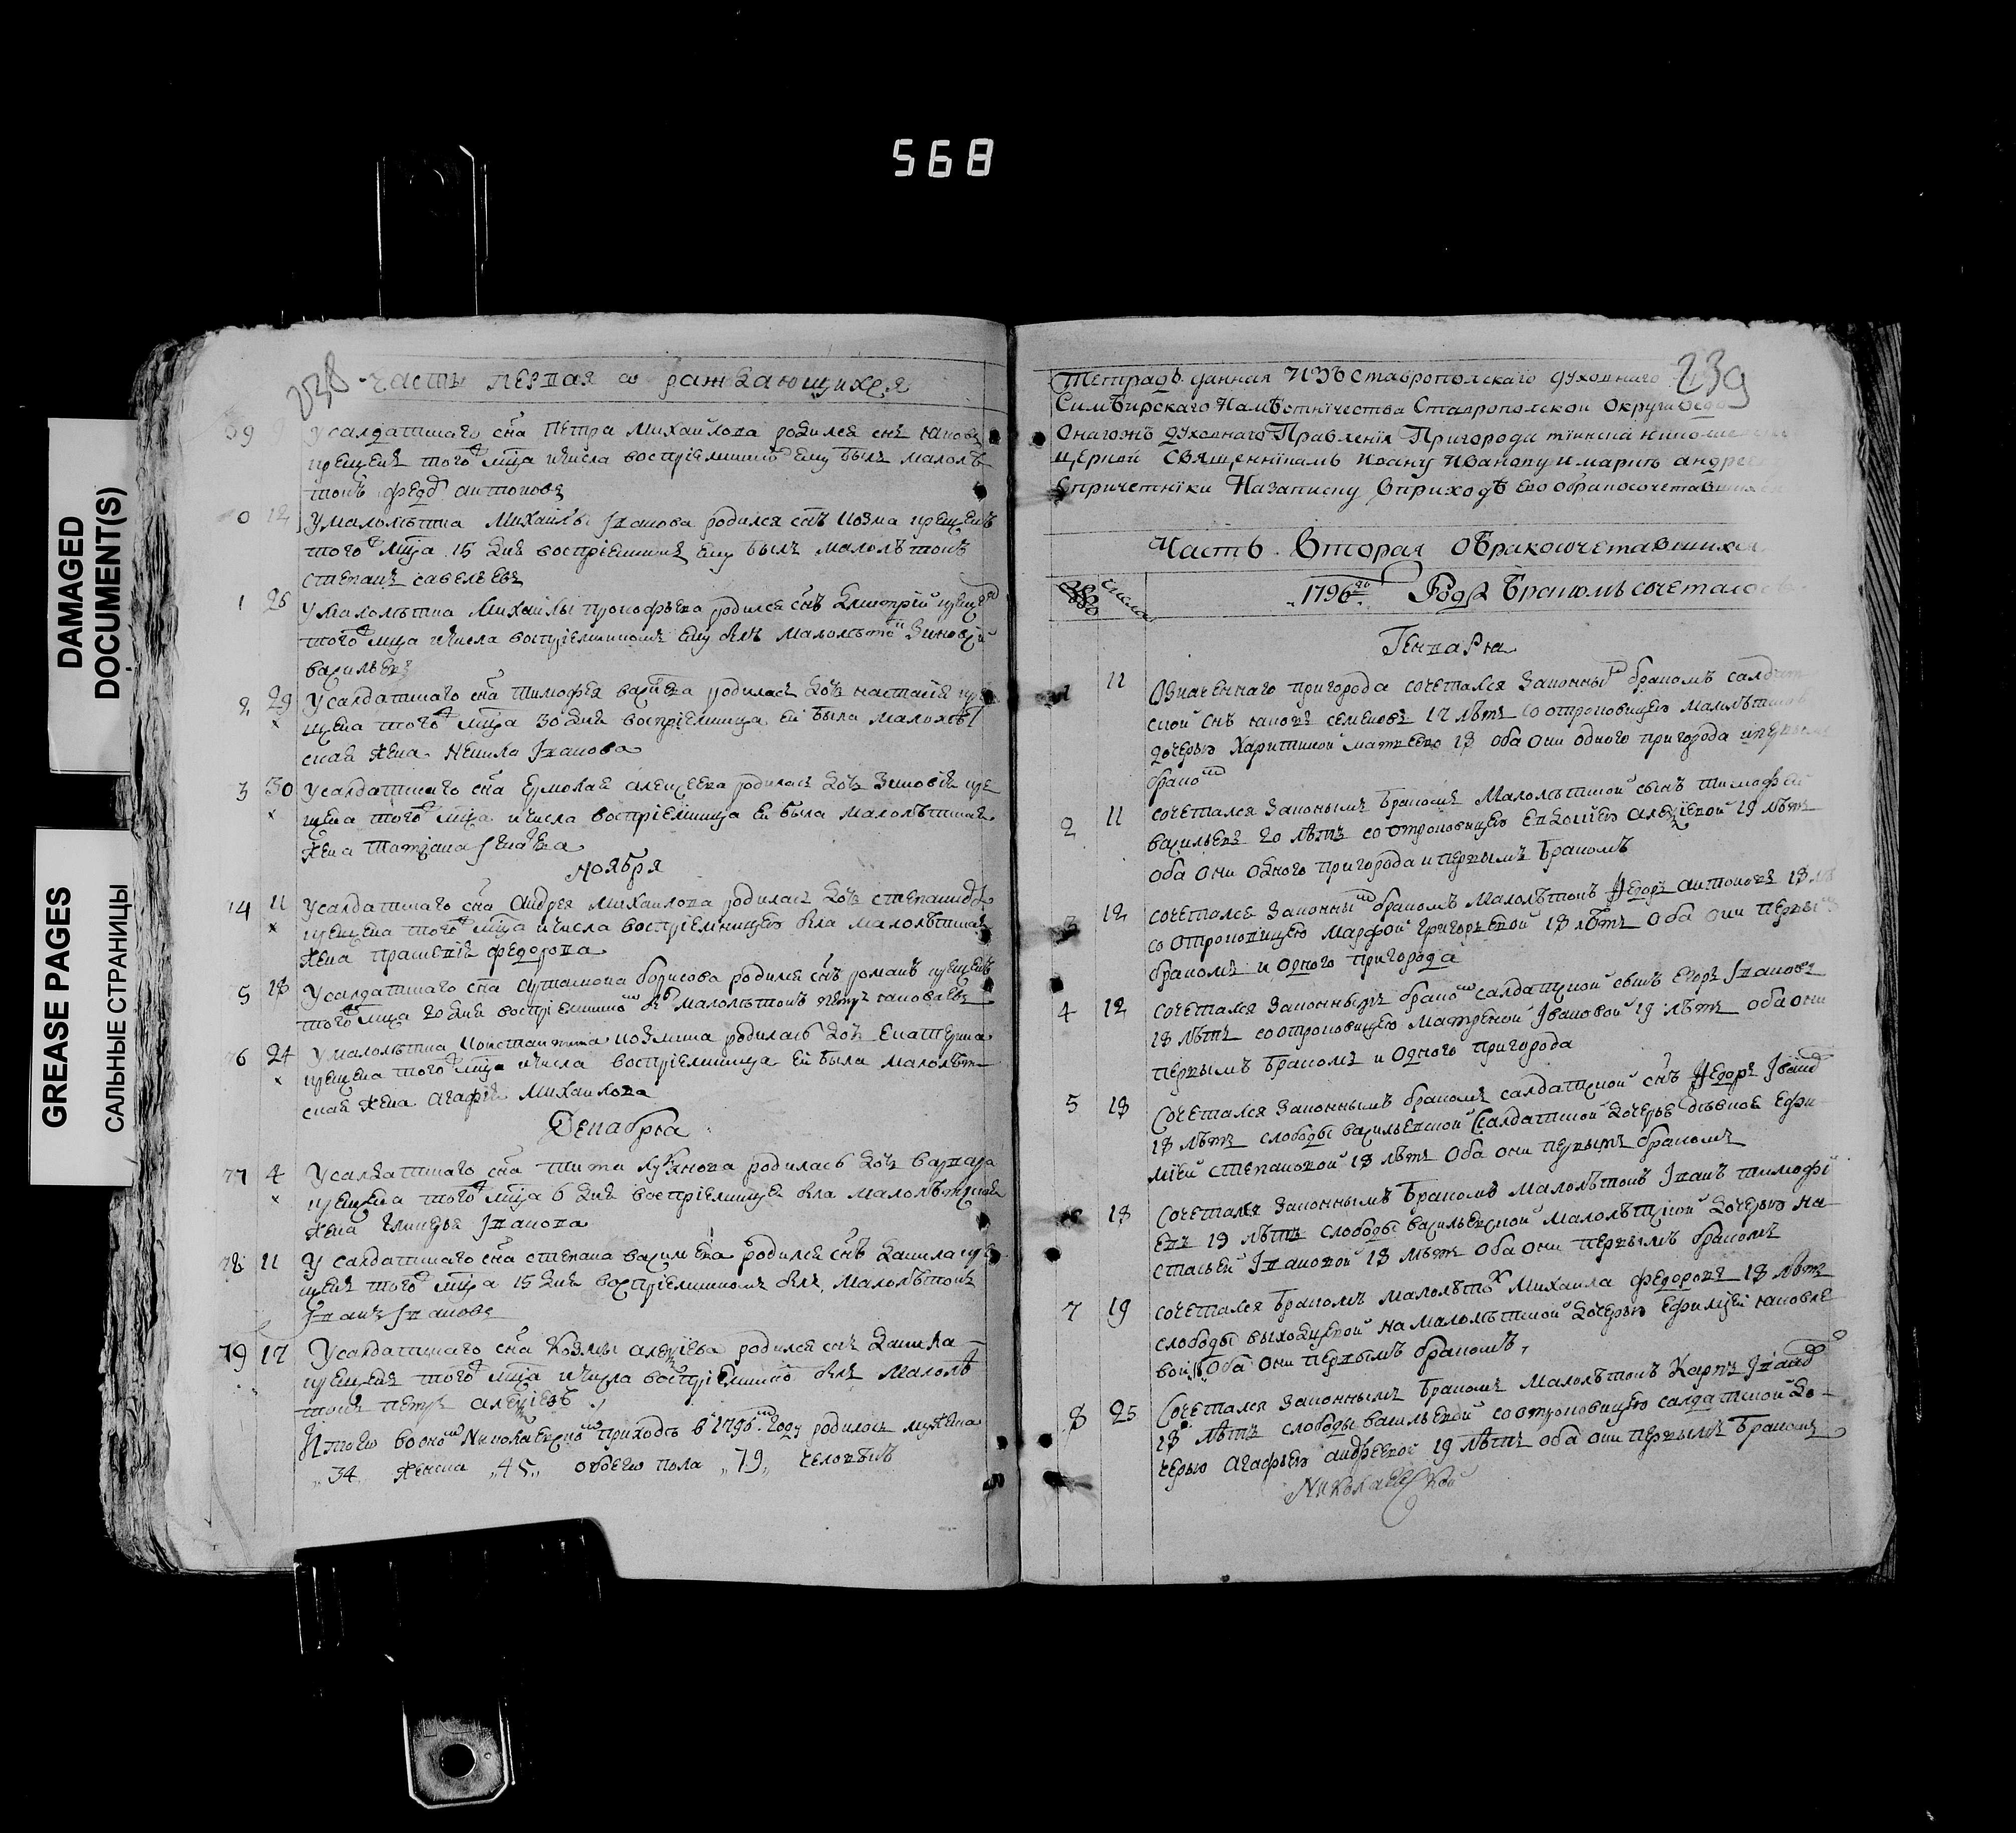 568
DAMAGED
DOCUMENT(S)
GREASE PAGES
САЛЬНЫЕ СТРАНИЦЫ
238
часть первая о раждающихся
69 У салдатскаго сна Петра Михаилова родился снъ Иаковъ
крещенъ того мца ичисла воспріемникъ ему былъ малолѣ
токъ федо антоновъ
0 12 У малолѣтка Михаилы Іванова родился снъ Козма крещенъ
того мца 15 дня воспріемникъ ему былъ малолѣтокъ
степанъ савельевъ
1 26 У малолѣтка Михайлы прокофьева родился снъ Дмитрій креще
того мца ичисла воспріемникомъ ему былъ малолѣто Зиновей
васильевъ
2 29 У салдатскаго сна тимофея родилась дочь настасия кре
щена того мца 30 дня воспріемница ей была малолѣт
ская жена Ненила Іванова
3 30 У салдатскаго сна Ермолая алеѯеева родилась дочь Зиновія кре
щена того мца ичисла воспріемница ей была малолѣтская
жена Татіана
ноября
14 11 У салдатскаго сна Андрея Михаилова родилась дочь степанида
крещена того мца ичисла воспріемницею бла малолѣтская
жена прасковія федорова
5 18 У салдатскаго сна артамона борисова родился снъ романъ крещенъ
того мца 20 дня воспріемнико малолѣтокъ петръ иаковлевъ
76 24 У малолѣтка Константина козмина родилась дочь Екатерина
крещена того мца ичисла воспріемница ей была малолѣт
ская жена агафія Михаилова
Декабря
77 4 У салдатскаго сна тита лукянова родилась дочь варвара
крещена того мца 6 дня воспріемницей бла малолѣтская
жена Іванова
78 11 У салдатскаго сна степана васильева родился снъ данила кре
щенъ того мца 15 дня воспріемникомъ былъ малолѣтокъ
Іванъ Івановъ
79 17 У салдатскаго сна Козмы алеѯіева родился снъ данила
крещенъ того мца ичисла воспріемнико былъ малолѣ
токъ петръ алеѯіевъ
Итого во оно Николаевско приходѣ в 1796 году родилось мужеска
34 женска 45 обоего пола 79 человѣкъ
239
Тетрадь данная ИЗЪ ставрополскаго духовнаго
Симбирскаго Намѣстничества Ставрополской Округи
Онагожъ духовнаго Правленія Пригорода тіинска николаев
церкви священникамъ Ивану Иванову и андрее
спричетники Назаписку вприходѣ его обракосочетавших
Часть Вторая Обракосочетавшихся
числа
1796го Году Бракомъ сочеталос
Генваря
1 11 Означеннаго пригорода сочетался законны бракомъ салдат
ской снъ иаковъ семеновъ 17 лѣтъ со отроковицею малолѣтков
дочерью Харитиной матвевой 18 оба они одного пригорода и первым
брако
2 11 сочетался законымъ бракомъ Малолѣтской сынъ тимофей
васильевъ 20 лѣтъ со отроковицею Евдокіею алеѯіевой 19 лѣтъ
оба они одного пригорода и первымъ бракомъ
3 12 сочетался законны бракомъ малолѣтокъ Ѳедоръ антоновъ 18 лѣ
со отроковицею Марфой Григорьевой 18 лѣтъ оба они первы
бракомъ и одного пригорода
4 12 сочетался законнымъ брако салдатской снъ Егоръ Івановъ
18 лѣтъ со отроковицею Матреной Івановой 19 лѣтъ оба они
первымъ бракомъ и одного пригорода
5 18 Сочетался законнымъ бракомъ салдатской снъ Ѳедоръ Івано
18 лѣтъ слободы васильевской салдатской дочерью дѣвкой Ефи
міей степановой 18 лѣтъ Оба они первымъ бракомъ
6 18 Сочетался законнымъ бракомъ малолѣтокъ Іванъ тимофі
евъ 19 лѣтъ слободы васильевской малолѣтской дочерью на
стасьей Івановой 18 лѣтъ оба они первымъ бракомъ
7 19 сочетался бракомъ малолѣто Михаила федоровъ 18 лѣтъ
слободы выходцевой на малолѣтской дочерью Ефиміей иаковле
вой Оба они первымъ бракомъ
8 25 Сочетался законнымъ бракомъ малолѣтокъ Карпъ Івано
18 лѣтъ слободы васильевой со отроковицею салдатской до
черью агафьею андреевой 19 лѣтъ оба они первымъ бракомъ
Николаевской